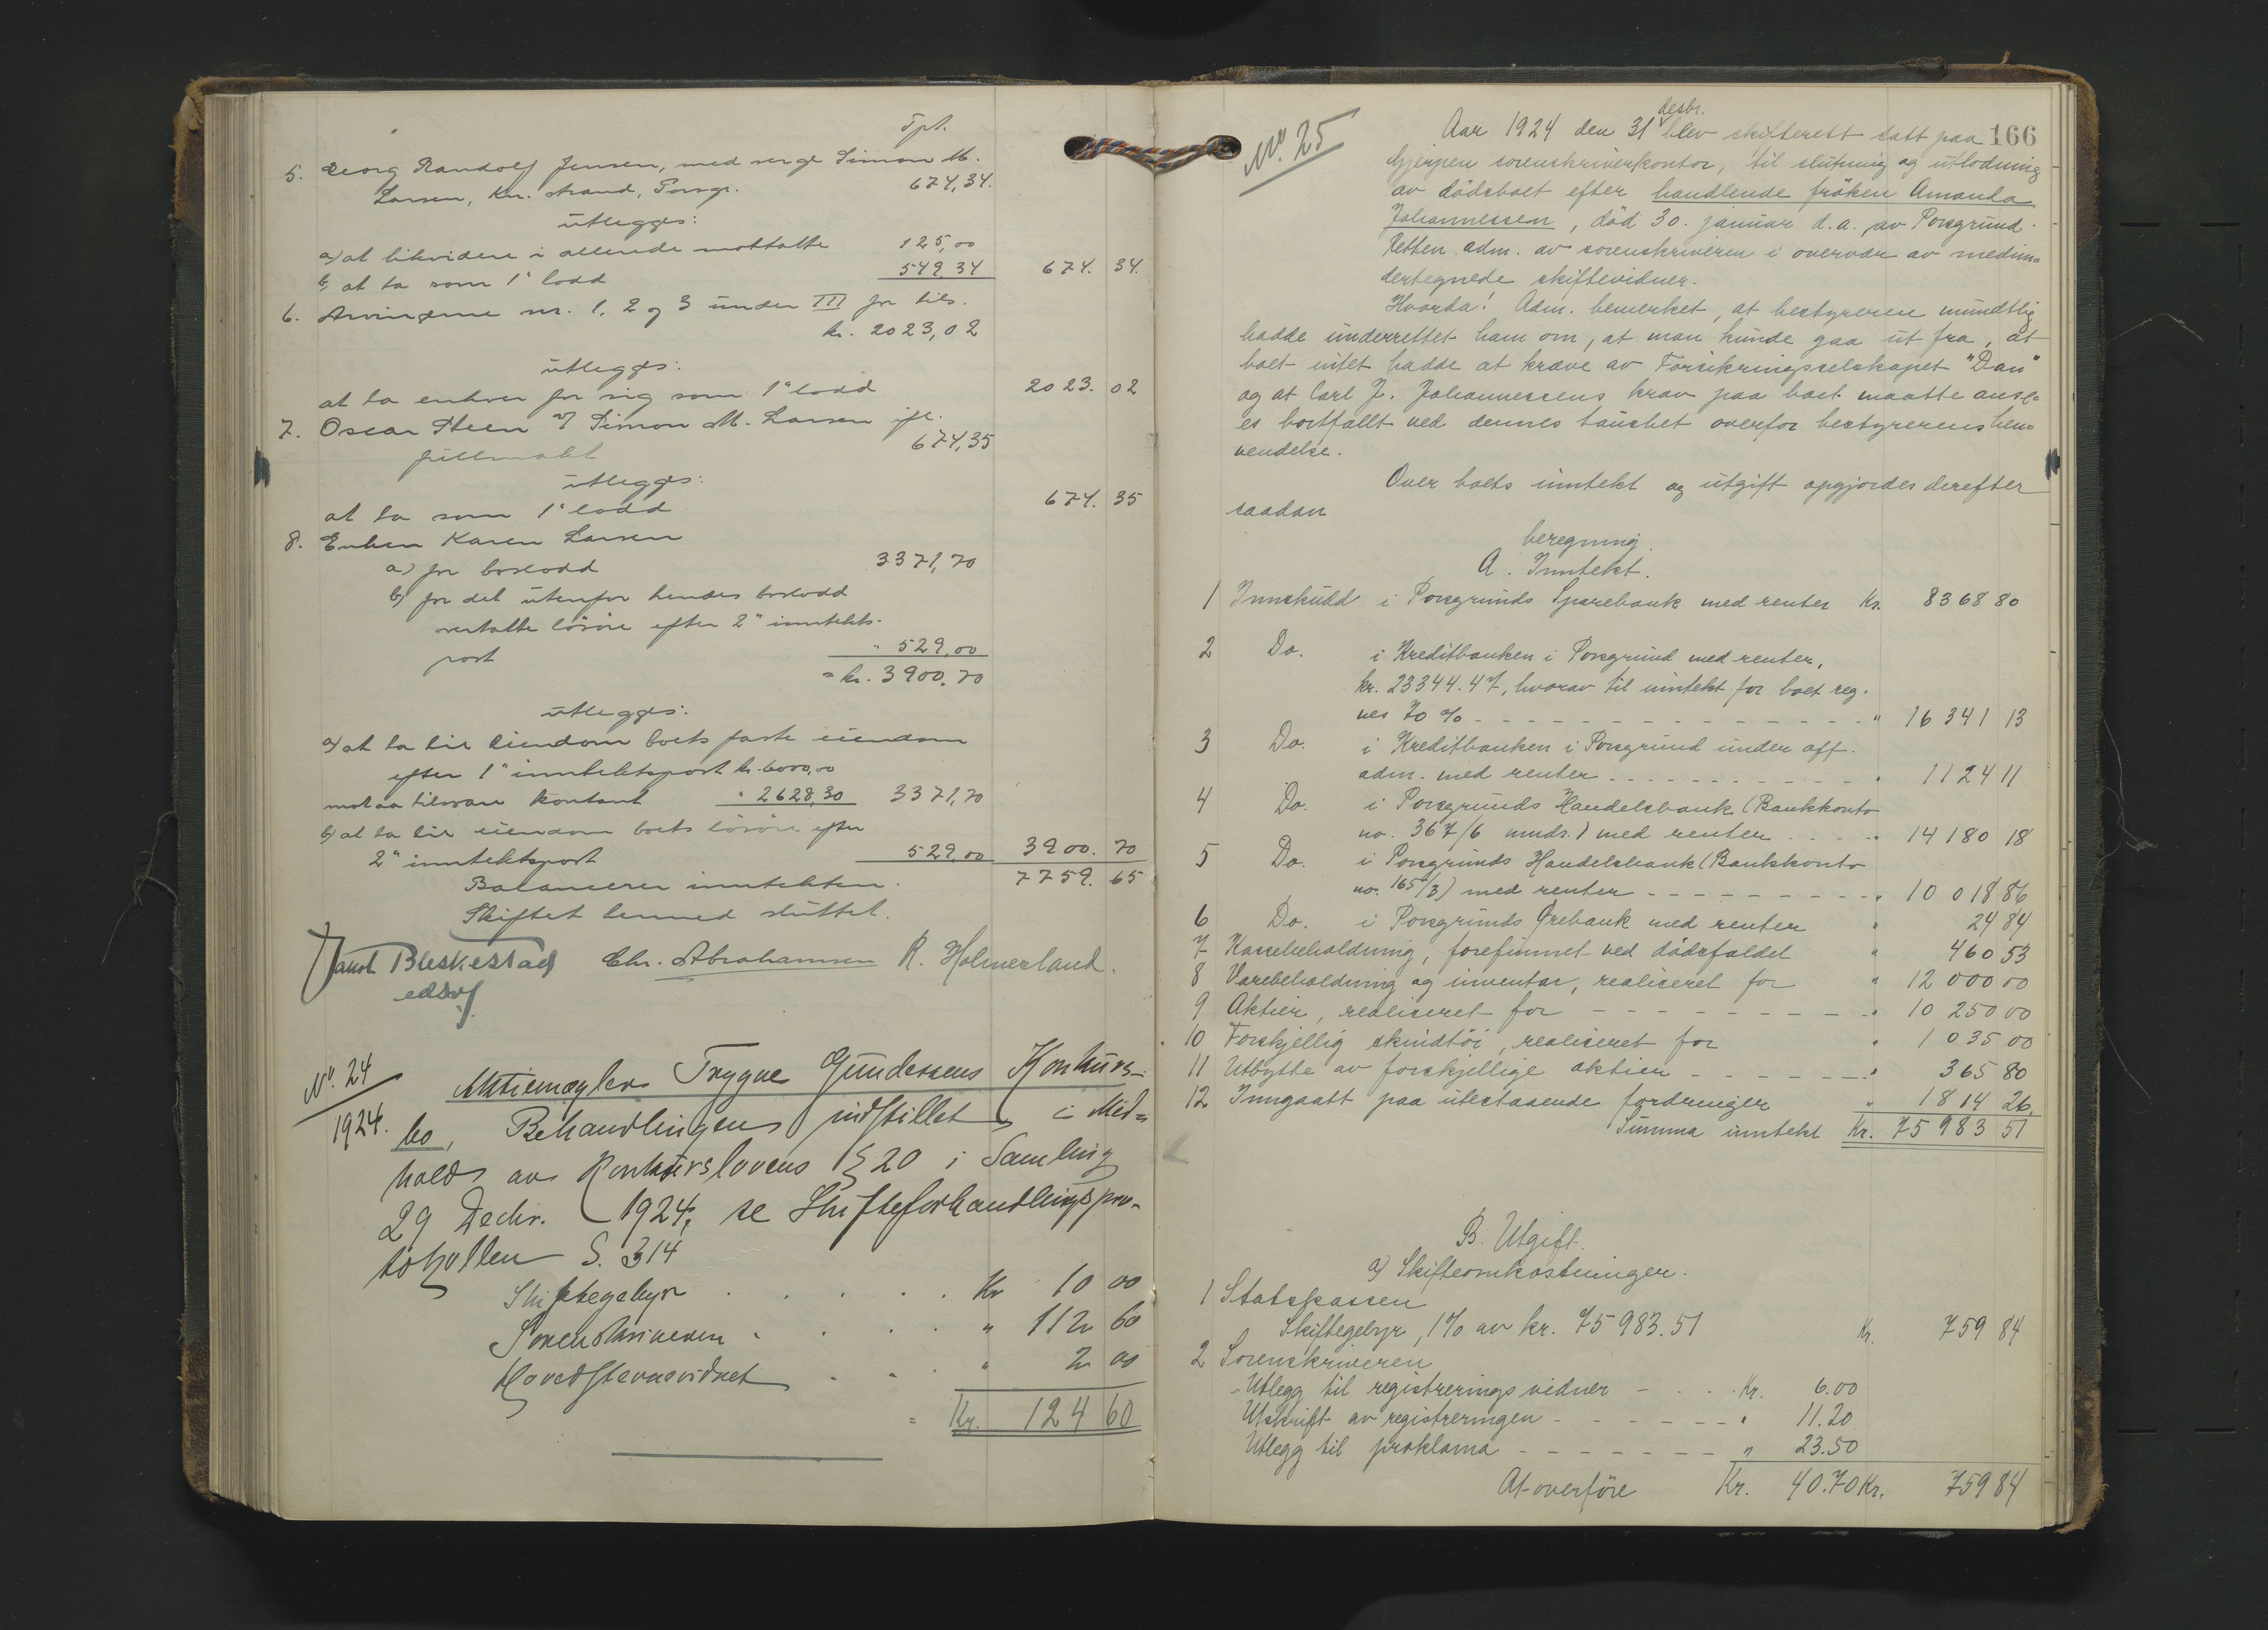 Tpt.
5. Georg Randolf Jensen, med verge Simon M.
Larsen, Kr. Strand, Porsgr. 674,34.
utlegges:
a) at likvidere i allerede mottatte 125,00
b) at ta som 1' lodd 549.34 674. 34.
6. Arvingene nr. 1, 2 og 3 under III for tils.
kr. 2023,02
utlegges:
at ta enhver for sig som 1" lodd 2023. 02
7. Oscar Steen v/ Simon M. Larsen ifl.
fullmakt 674,35
utlegges:
at ta som 1" lodd 674. 35
8. Enken Karen Larsen
a) for boslodd 3371,70
b) for det utenfor hendes boslodd
overtatte lösöre efter 2" inntekts-
post " 529,00
= kr. 3900,70
utlegges:
a) at ta til eiendom boets faste eiendom
efter 1" inntektspost kr. 6000,00
mot aa tilsvare kontant " 2628,30 3371,70
b) at ta til eiendom boets lösöre efter
2" inntektspost 529,00 3900. 70
Balancerer inntekten. 7759. 65
Skiftet hermed sluttet.
Jacob Bleskestad Chr. Abrahamsen R. Holmerland.
edsvf.
No. 24
1924.
Aktiemægler Trygve Gundersens Konkurs-
bo, Behandlingen indstillet i Med-
hold av Konkurslovens § 20 i Samling
29 Decbr. 1924, se Skifteforhandlingspro-
tokollen S. 314
Skiftegebyr . . . . . Kr 10 00
Sorenskriveren . . . . " 112 60
Hovedstevnevidnet . . . " 2 00
= Kr. 124 60
166
No. 25
desbr.
Aar 1924 den 31 blev skifterett satt paa
Gjerpen sorenskriverkontor, til slutning og utlodning
av dödsboet efter handlende fröken Amanda
Johannessen, död 30. januar d.a. av Porsgrund.
Retten adm. av sorenskriveren i overvær av medun=
dertegnede skiftevidner.
Hvorda! Adm. bemerket, at bestyreren mundtlig
hadde underrettet ham om, at man kunde gaa ut fra, at
boet intet hadde at kræve av Forsikringsselskapet "Dan"
og at Carl J. Johannessens krav paa boet maatte anse-
es bortfallt ved dennes taushet overfor bestyrerens hen=
vendelse.
Over boets inntekt og utgift opgjordes derefter
saadan
beregning.
A. Inntekt.
1 Innskudd i Porsgrunds Sparebank med renter Kr. 8368 80
2 Do. i Kreditbanken i Porsgrund med renter,
kr. 23344.47, hvorav til inntekt for boet reg-
nes 70 % - - - - - " 16 341 13
3 Do. i Kreditbanken i Porsgrund under off.
adm. med renter - - - - - " 1124 11
4 Do. i Porsgrunds Handelsbank (Bankkonto
no. 367/6 mndr.) med renter - - - " 14 180 18
5 Do. i Porsgrunds Handelsbank (Bankkonto
no. 165/3) med renter - - - - - " 10 018 86
6 Do. i Porsgrunds Örebank med renter " 24 84
7 Kassebeholdning, forefunnet ved dödsfaldet " 460 53
8 Varebeholdning og inventar, realiseret for " 12 000 00
9 Aktier, realiseret for - - - - - " 10 250 00
10 Forskjellig skindtöi, realiseret for " 1 035 00
11 Utbytte av forskjellige aktier - - - - " 365 80
12 Inngaatt paa utestaaende fordringer " 1814 26
Summa inntekt Kr. 75 983 51
B. Utgift.
a) Skifteomkostninger.
1 Statskassen
Skiftegebyr, 1% av kr. 75983.51 Kr. 759 84
2 Sorenskriveren
Utlegg til registreringsvidner - . . . Kr. 6.00
Utskrift av registreringen - - - - - " 11.20
Utlegg til proklama - - - - - " 23.50
At overföre Kr. 40.70 Kr. 759 84